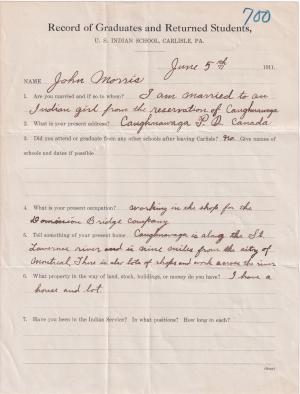 700
Record of Graduates and Returned Students,
U. S. INDIAN SCHOOL, CARLISLE, PA.
June 5th 1911.
NAME John Morris
1. Are you married and if so to whom? I am married to an
Indian girl from the reservation of Caughnawaga
2. What is your present address? Caughnawaga P. Q. Canada
3. Did you attend or graduate from any other schools after leaving Carlisle? No. Give names of
schools and dates if possible
4. What is your present occupation? Working in the shop for the
Dominion Bridge Company
5. Tell something of your present home. Caughnawaga is along the St.
Lawrence river and is nine miles from the city of
Montreal There is also lots of ships and work across the river
6. What property in the way of land, stock, buildings, or money do you have? I have a
house and lot
7. Have you been in the Indian Service? In what positions? How long in each?
(Over)